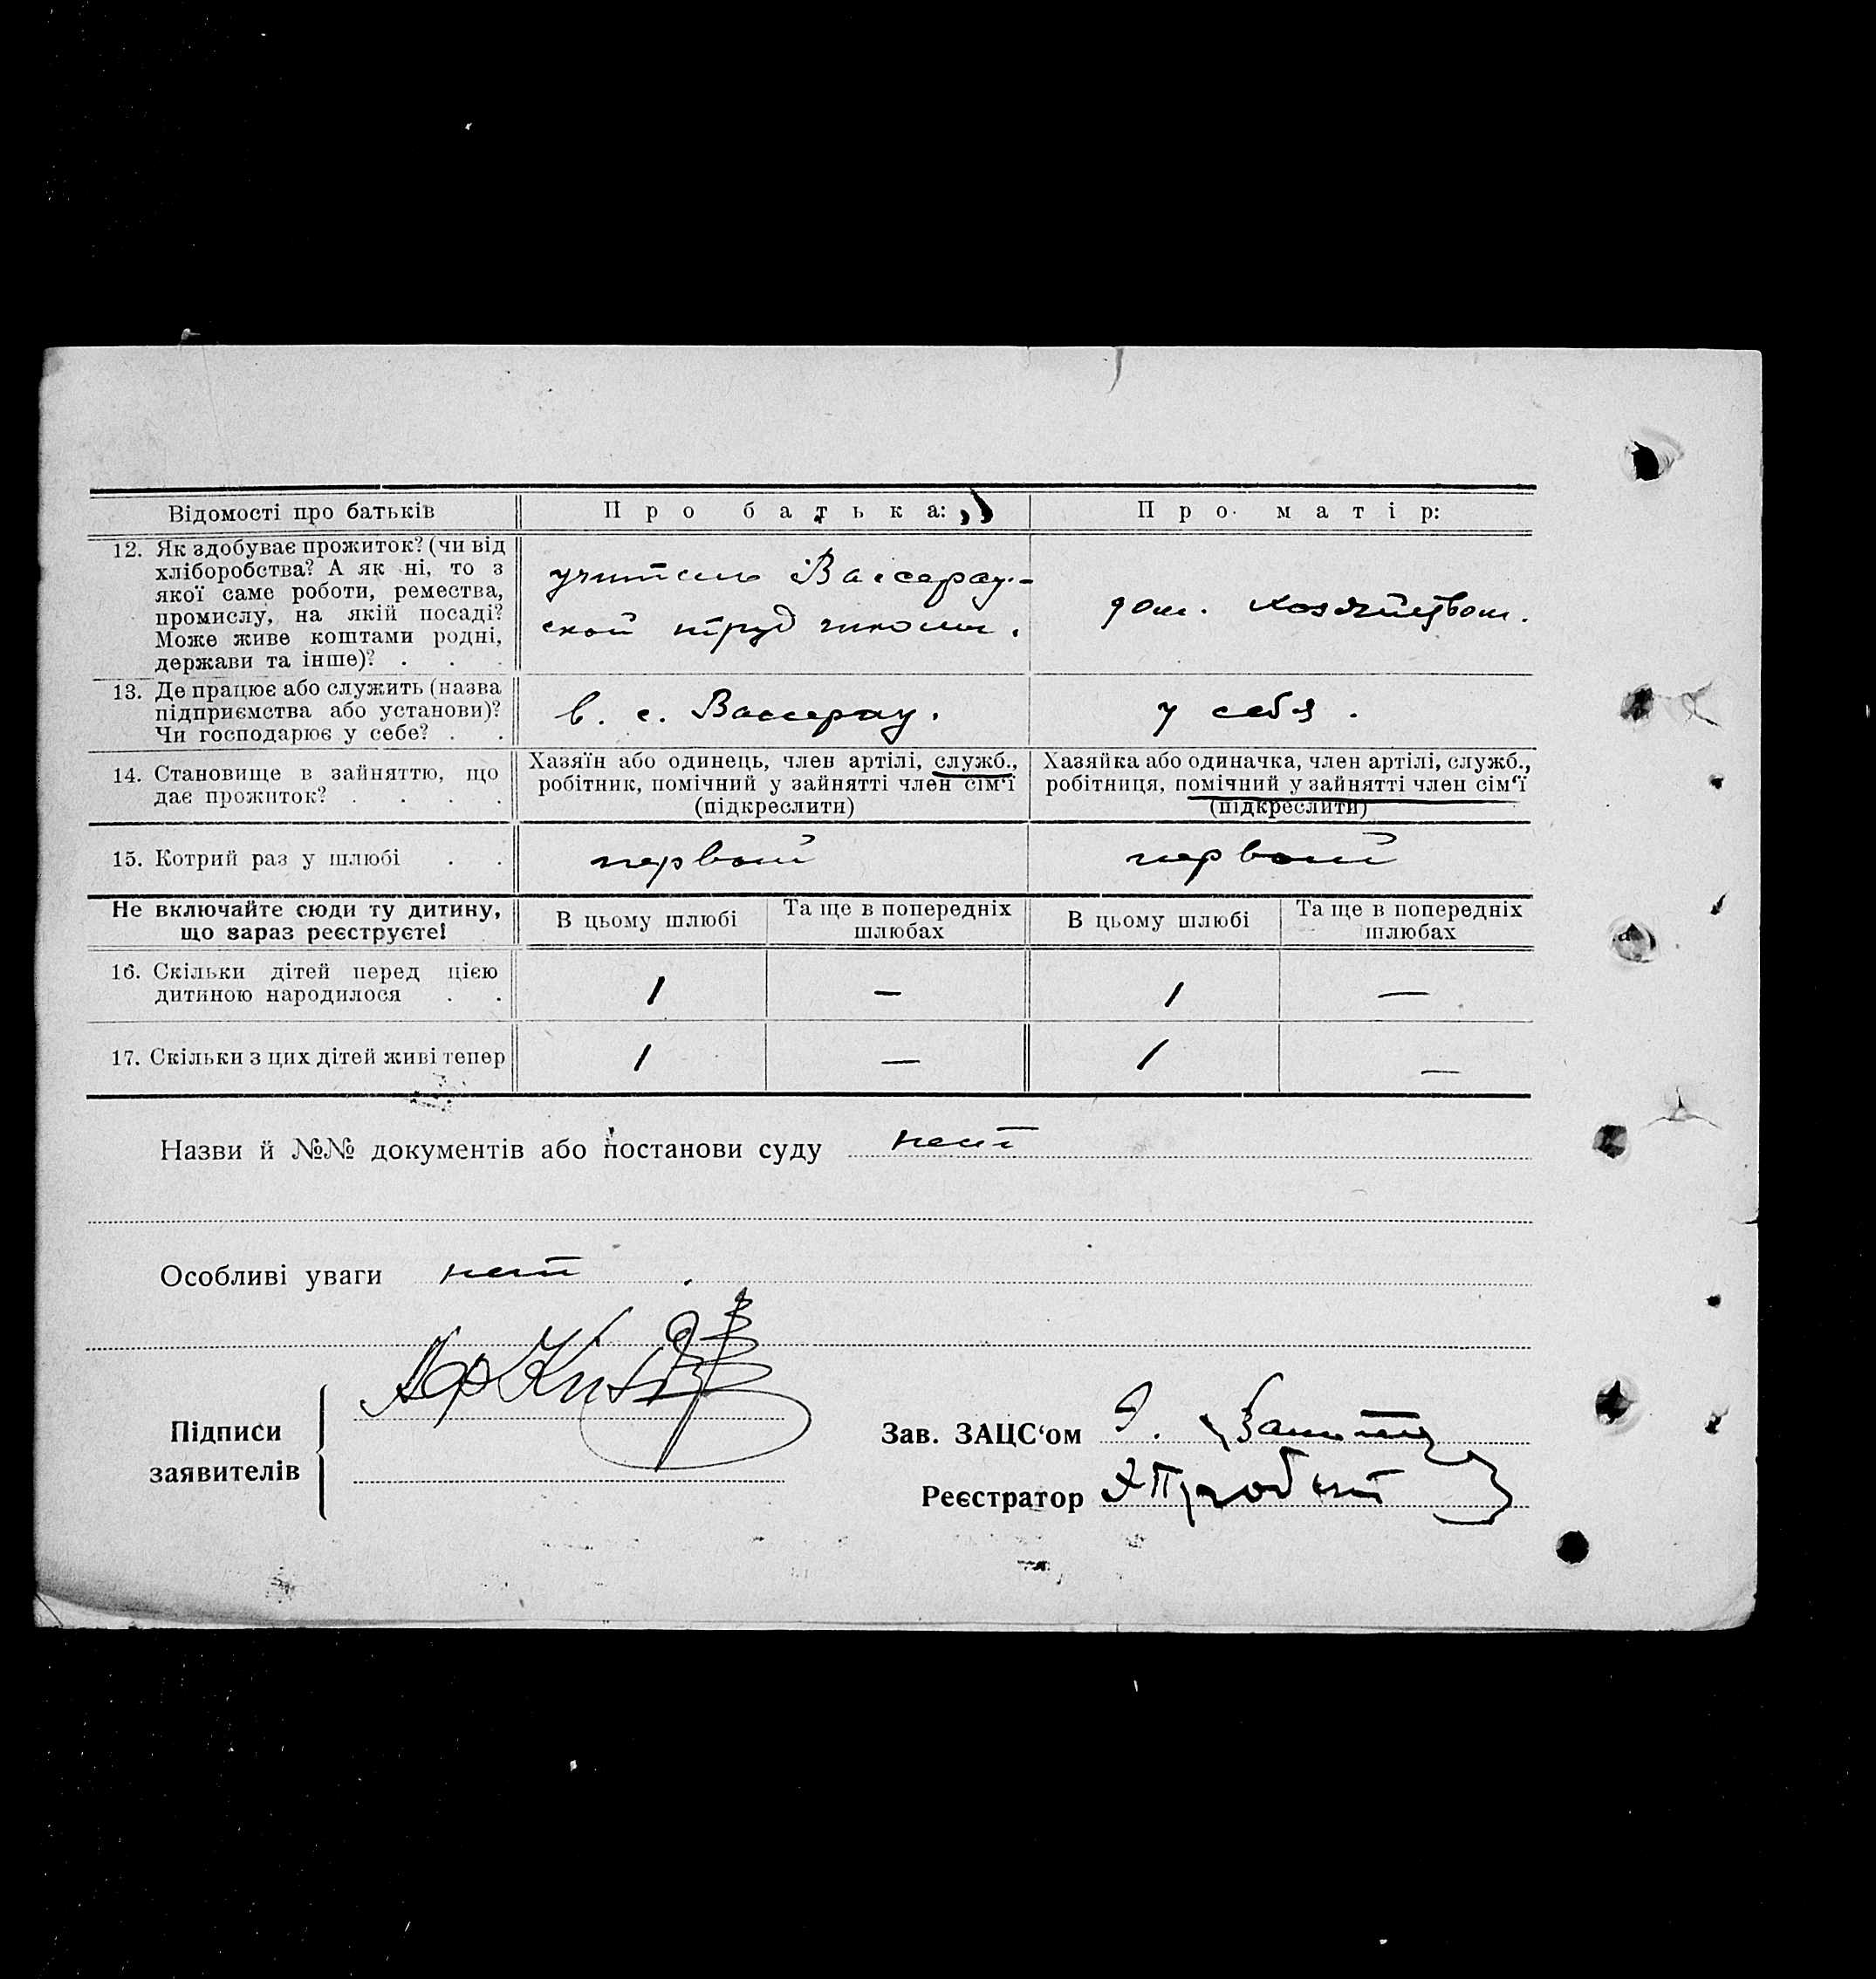 Відомості про батьків
Про батька:
Про матір:
12. Як здобуває прожиток? (чи від
хліборобства? А як ні, то з
якої саме роботи, ремества,
промислу, на якій посаді?
Може живе коштами родні,
держави та інше)? . . .
учитель Вассерау-
ской труд школы.
дом. хозяйством.
13. Де працює або служить (назва
підприємства або установи)?
Чи господарює у себе? . .
в. с. Вассерау.
у себя.
14. Становище в зайняттю, що
дає прожиток? . . . .
Хазяїн або одинець, член артілі, служб.,
робітник, помічний у зайнятті член сім'ї
(підкреслити)
Хазяйка або одиначка, член артілі, служб.,
робітниця, помічний у зайнятті член сім'ї
(підкреслити)
15. Котрий раз у шлюбі . .
первый
первый
Не включайте сюди ту дитину,
що зараз реєструєте!
В цьому шлюбі
Та ще в попередніх
шлюбах
В цьому шлюбі
Та ще в попередніх
шлюбах
16. Скільки дітей перед цією
дитиною народилося . .
1
—
1
—
17. Скільки з цих дітей живі тепер
1
—
1
—
Назви й №№ документів або постанови суду нет
Особливі уваги нет
Підписи
заявителів
Зав. ЗАЦС'ом
Реєстратор